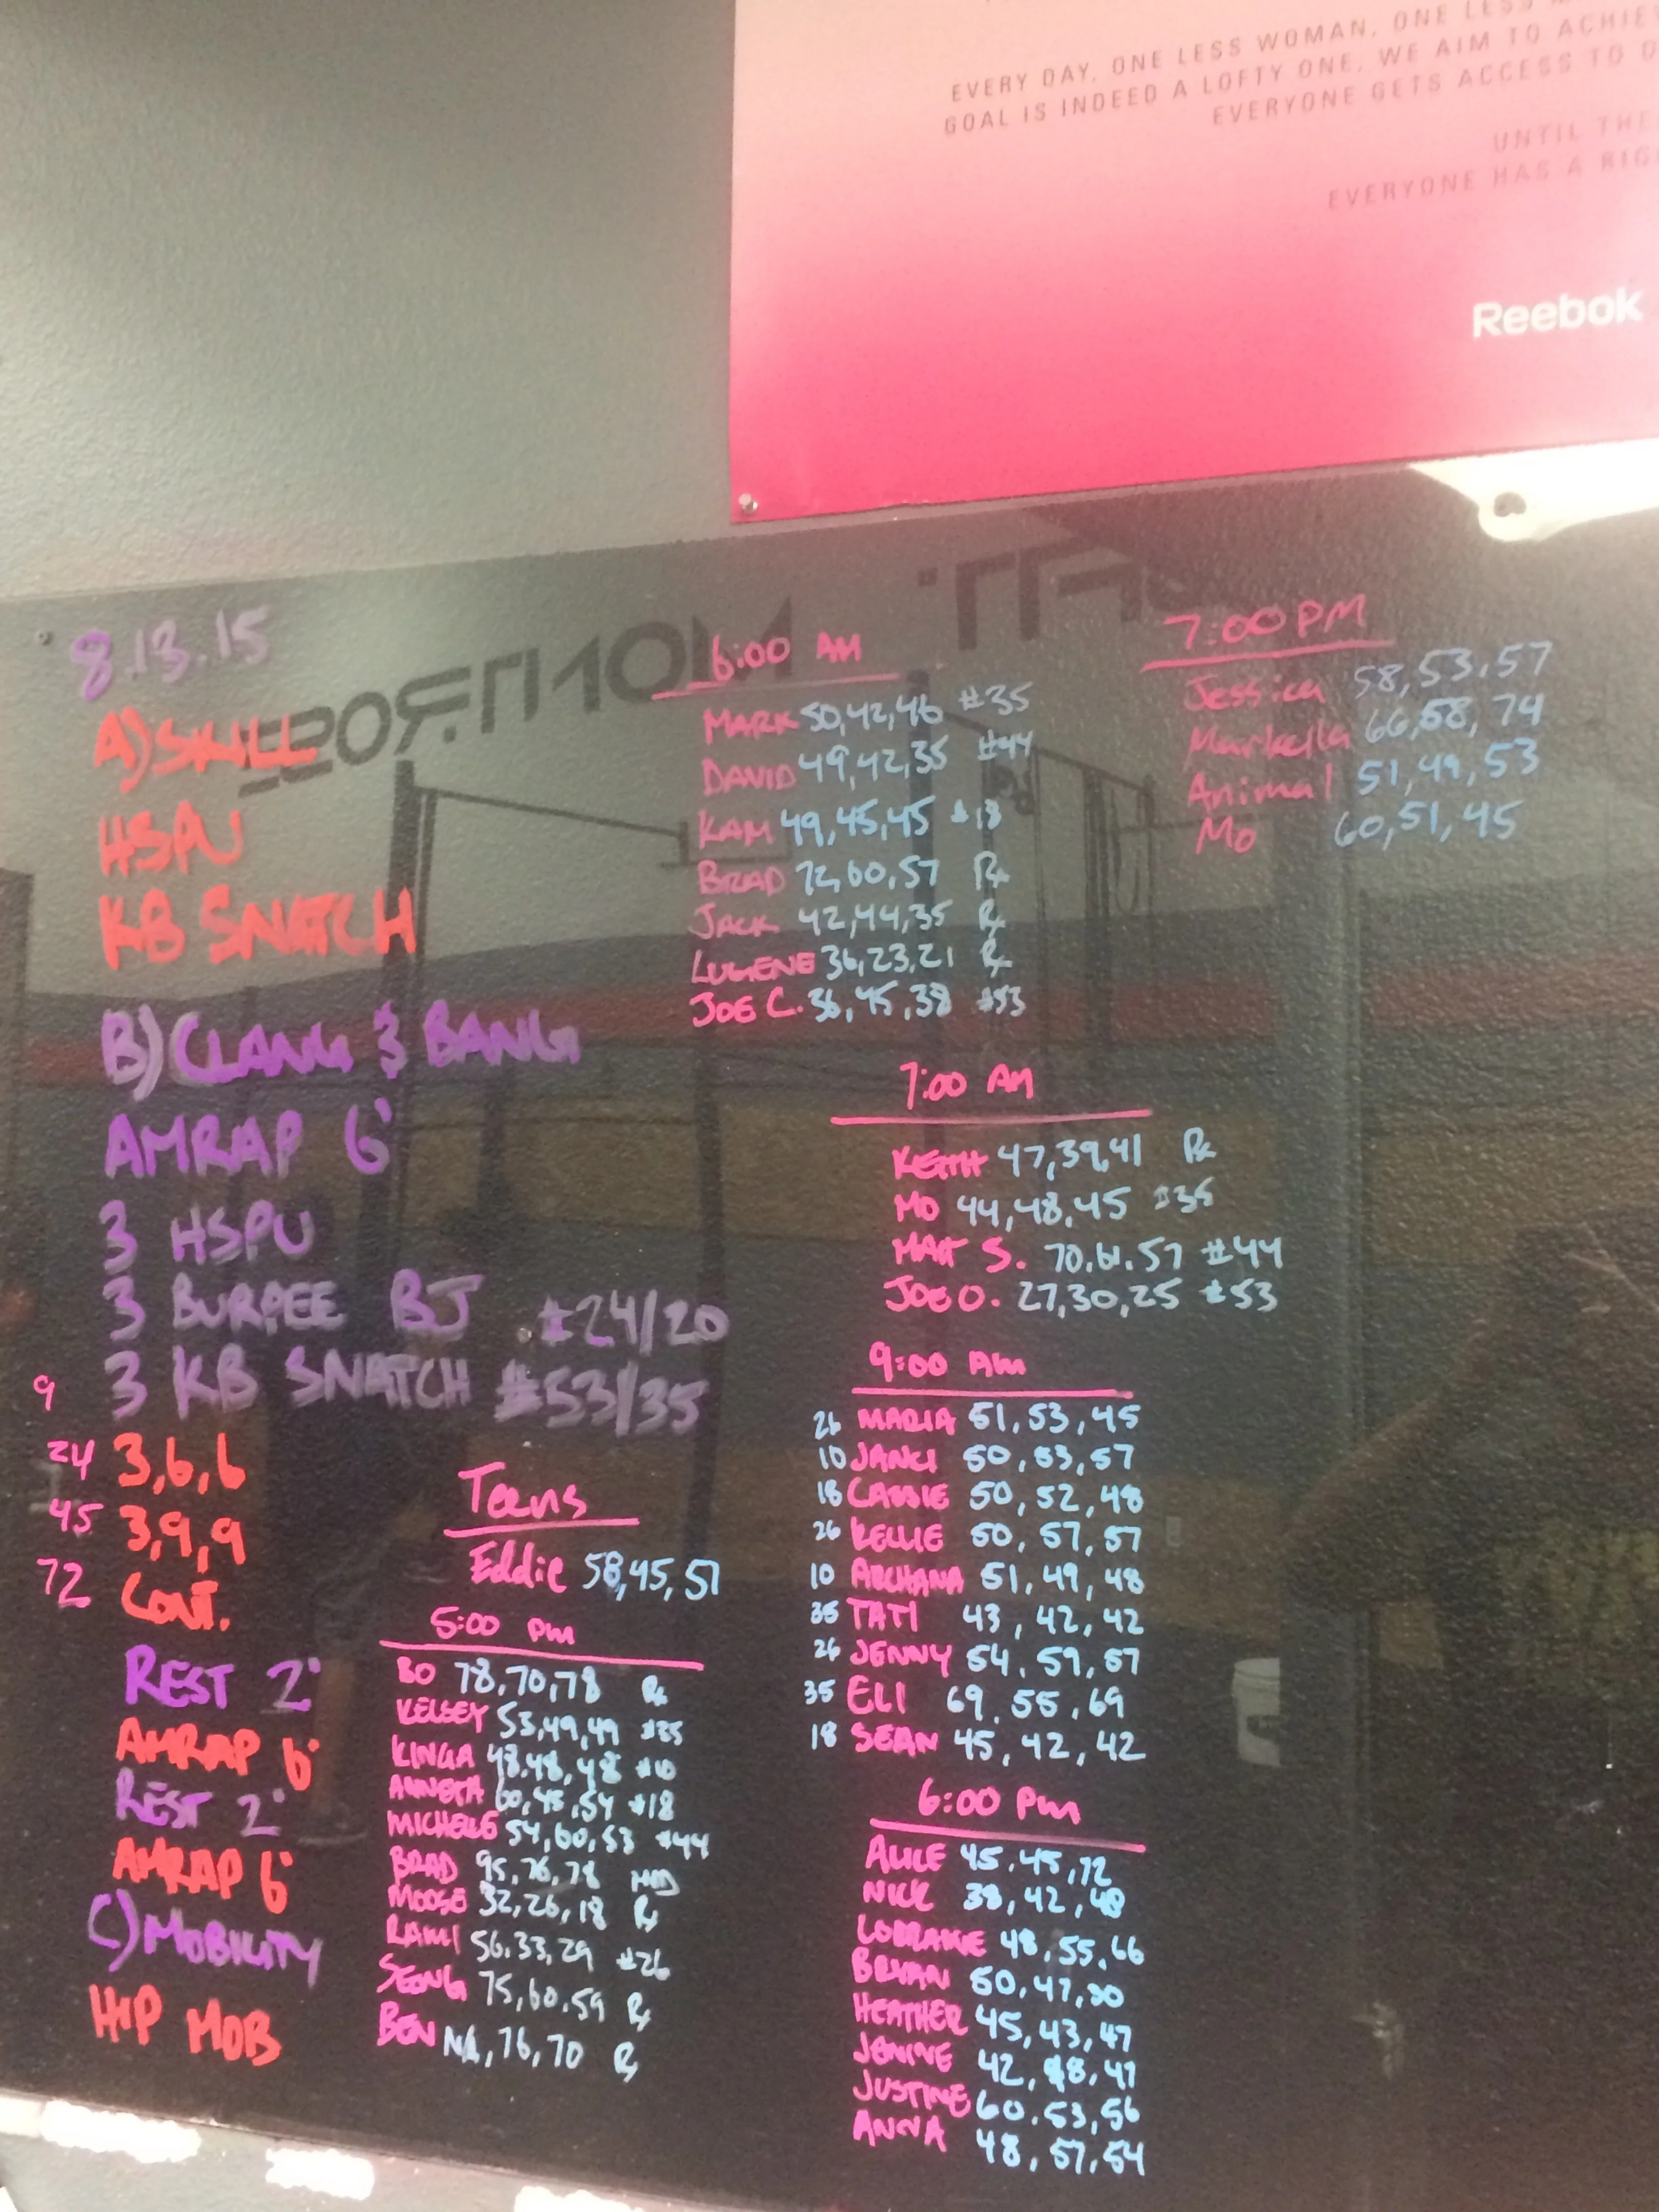 EVERY DAY, ONE LESS WOMAN, ONE LESS
GOAL IS INDEED A LOFTY ONE. WE AIM TO ACHIEV
EVERYONE GETS ACCESS TO
UNTIL THE
EVERYONE HAS A RIG
Reebok
8.13.15
A) SKILL
HSPU
KB SNATCH
B) CLANG & BANG
AMRAP 6'
3 HSPU
3 BURPEE BJ #24/20
3 KB SNATCH #53/35
9
24 3,6,6
45 3,9,9
72 CONT.
REST 2'
AMRAP 6'
REST 2'
AMRAP 6'
C) MOBILITY
HIP MOB
Teens
Eddie 58,45,51
5:00 PM
BO 78,70,78 Rx
KELSEY 53,49,49 #35
KINGA 48,48,48 #10
60,45,54 #18
MICHELE 54,60,53 #44
BRAD 95,76,78
MOOSE 32,26,18 Rx
RAMI 56,33,29 #26
SEONG 75,60,59 Rx
BEN NA,76,70 Rx
6:00 AM
MARK 50,42,46 #35
DAVID 49,42,35 #44
KAM 49,45,45 #18
BRAD 72,60,57 Rx
JACK 42,44,35 Rx
LUGENE 36,23,21 Rx
JOE C. 36,45,38 #53
7:00 AM
KEITH 47,39,41 Rx
MO 44,48,45 #35
MATT S. 70,61,57 #44
JOE O. 27,30,25 #53
9:00 AM
26 MARIA 51,53,45
10 JANCI 50,53,57
18 CASSIE 50,52,48
26 KELLIE 50,57,57
10 ARCHANA 51,49,48
35 TATI 43,42,42
26 JENNY 54,59,57
35 ELI 69,55,69
18 SEAN 45,42,42
6:00 PM
ALICE 45,45,72
NICK 38,42,48
LORRAINE 48,55,66
BRYAN 50,47,30
HEATHER 45,43,47
JENINE 42,48,47
JUSTINE 60,53,56
ANNA 48,57,54
7:00 PM
Jessica 58,53,57
Markella 66,58,74
Animal 51,49,53
Mo 60,51,45